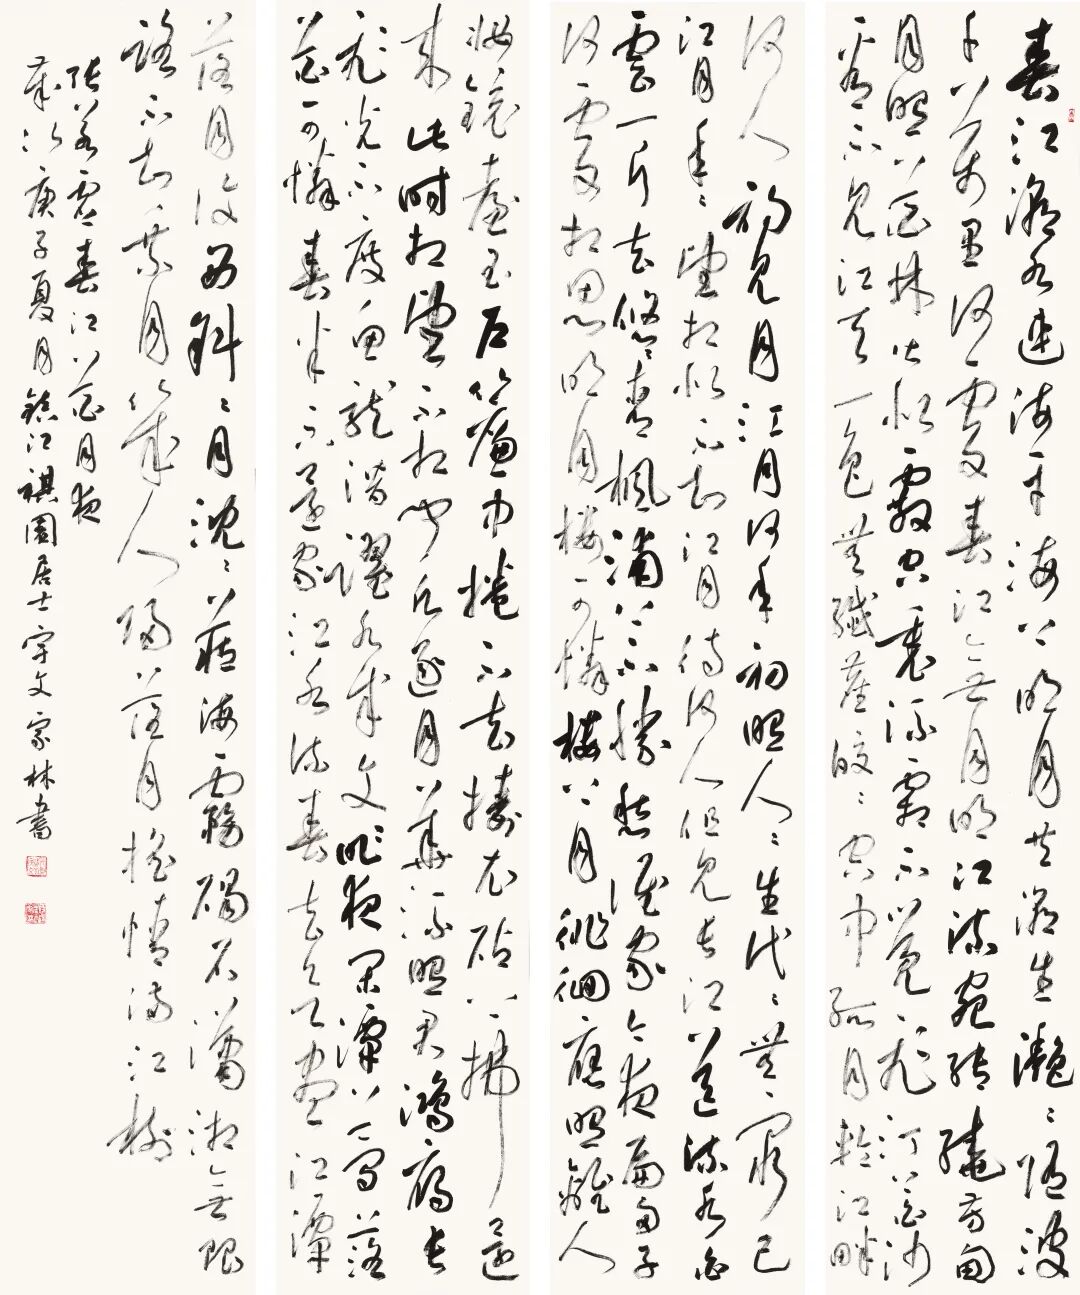 春江潮水連海平海上明月共潮生灩灩隨波
千萬里何處春江無月明江流宛轉繞芳甸
月照花林皆似霰空裏流霜不覺飛汀上白沙
看不見江天一色無纖塵皎皎空中孤月輪江畔
何人初見月江月何年初照人人生代代無窮已
江月年年望相似不知江月待何人但見長江送流水白
雲一片去悠悠青楓浦上不勝愁誰家今夜扁舟子
何處相思明月樓可憐樓上月徘徊應照離人
妝鏡臺玉戶簾中捲不去擣衣砧上拂還
來此時相望不相聞願逐月華流照君鴻雁長
飛光不度魚龍潛躍水成文昨夜閑潭夢落
花可憐春半不還家江水流春去欲盡江潭
落月復西斜斜月沈沈藏海霧碣石瀟湘無限
路不知乘月幾人歸落月搖情滿江樹
張若虛春江花月夜
歲次庚子夏月鎮江祺園居士宇文家林書